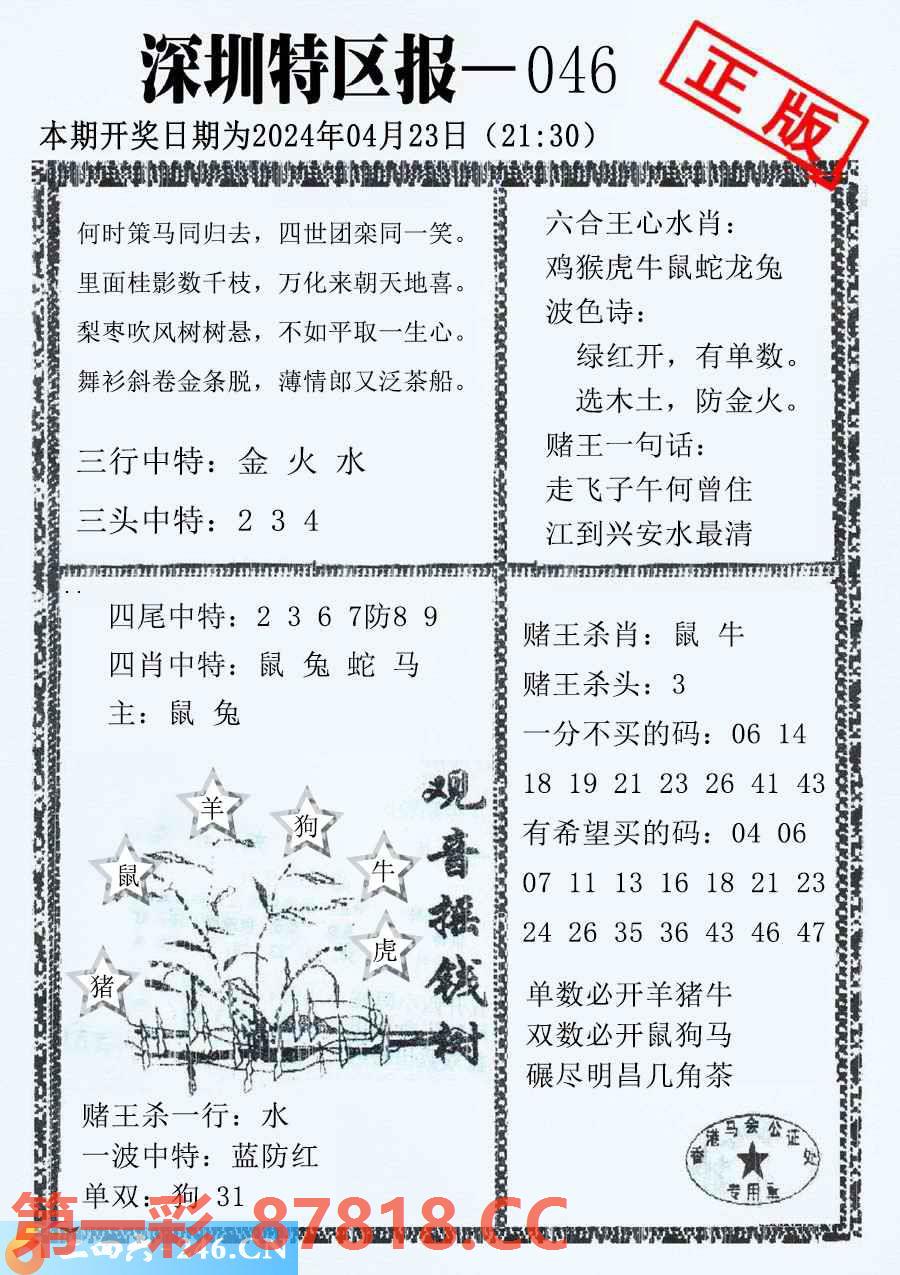 深圳特区报—046
正版
本期开奖日期为2024年04月23日（21:30）
何时策马同归去，四世团栾同一笑。
里面桂影数千枝，万化来朝天地喜。
梨枣吹风树树悬，不如平取一生心。
舞衫斜卷金条脱，薄情郎又泛茶船。
三行中特：金 火 水
三头中特：2 3 4
六合王心水肖：
鸡猴虎牛鼠蛇龙兔
波色诗：
绿红开，有单数。
选木土，防金火。
赌王一句话：
走飞子午何曾住
江到兴安水最清
四尾中特：2 3 6 7防8 9
四肖中特：鼠 兔 蛇 马
主：鼠 兔
观音摇钱树
羊
狗
鼠
牛
虎
猪
赌王杀一行：水
一波中特：蓝防红
单双：狗 31
赌王杀肖：鼠 牛
赌王杀头：3
一分不买的码：06 14
18 19 21 23 26 41 43
有希望买的码：04 06
07 11 13 16 18 21 23
24 26 35 36 43 46 47
单数必开羊猪牛
双数必开鼠狗马
碾尽明昌几角茶
香港马会公证处
专用章
第一彩 87818.CC
246.CN